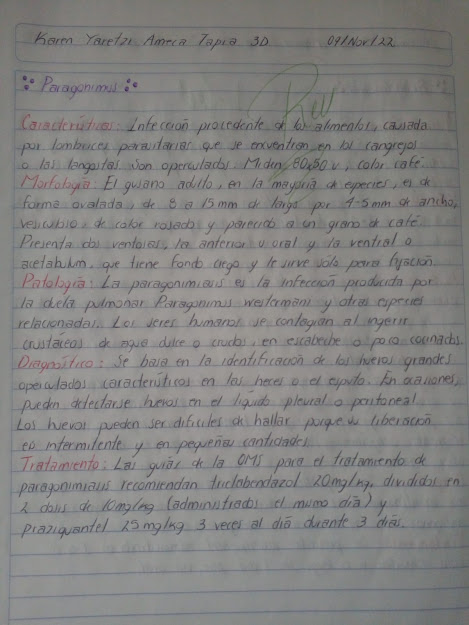 Karen Yaretzi Ameca Tapia 3D 09/Nov/22
Paragonimus
Rev
Características: Infección procedente de los alimentos, causada
por lombrices parasitarias que se encuentran en los cangrejos
o las langostas son operculados. Miden 80x50 u, color café.
Morfología: El gusano adulto, en la mayoría de especies, es de
forma ovalada, de 8 a 15 mm de largo por 4-5 mm de ancho,
de color rosado y parecido a un grano de café.
Presenta dos ventosas, la anterior u oral y la ventral o
acetabulum, que tiene fondo ciego y le sirve sólo para fijación.
Patología: La paragonimiasis es la infección producida por
la duela pulmonar Paragonimus westermani y otras especies
relacionadas. Los seres humanos se contagian al ingerir
crustáceos de agua dulce o crudos, en escabeche o poco cocinados.
Diagnóstico: Se basa en la identificación de los huevos grandes
operculados característicos en las heces o el esputo. En ocasiones,
pueden detectarse huevos en el líquido pleural o peritoneal.
Los huevos pueden ser difíciles de hallar porque su liberación
es intermitente y en pequeñas cantidades.
Tratamiento: Las guías de la OMS para el tratamiento de
paragonimiasis recomiendan triclabendazol 20mg/kg, divididos en
2 dosis de 10mg/kg (administrados el mismo día) y
Praziquantel 25mg/kg 3 veces al día durante 3 días.